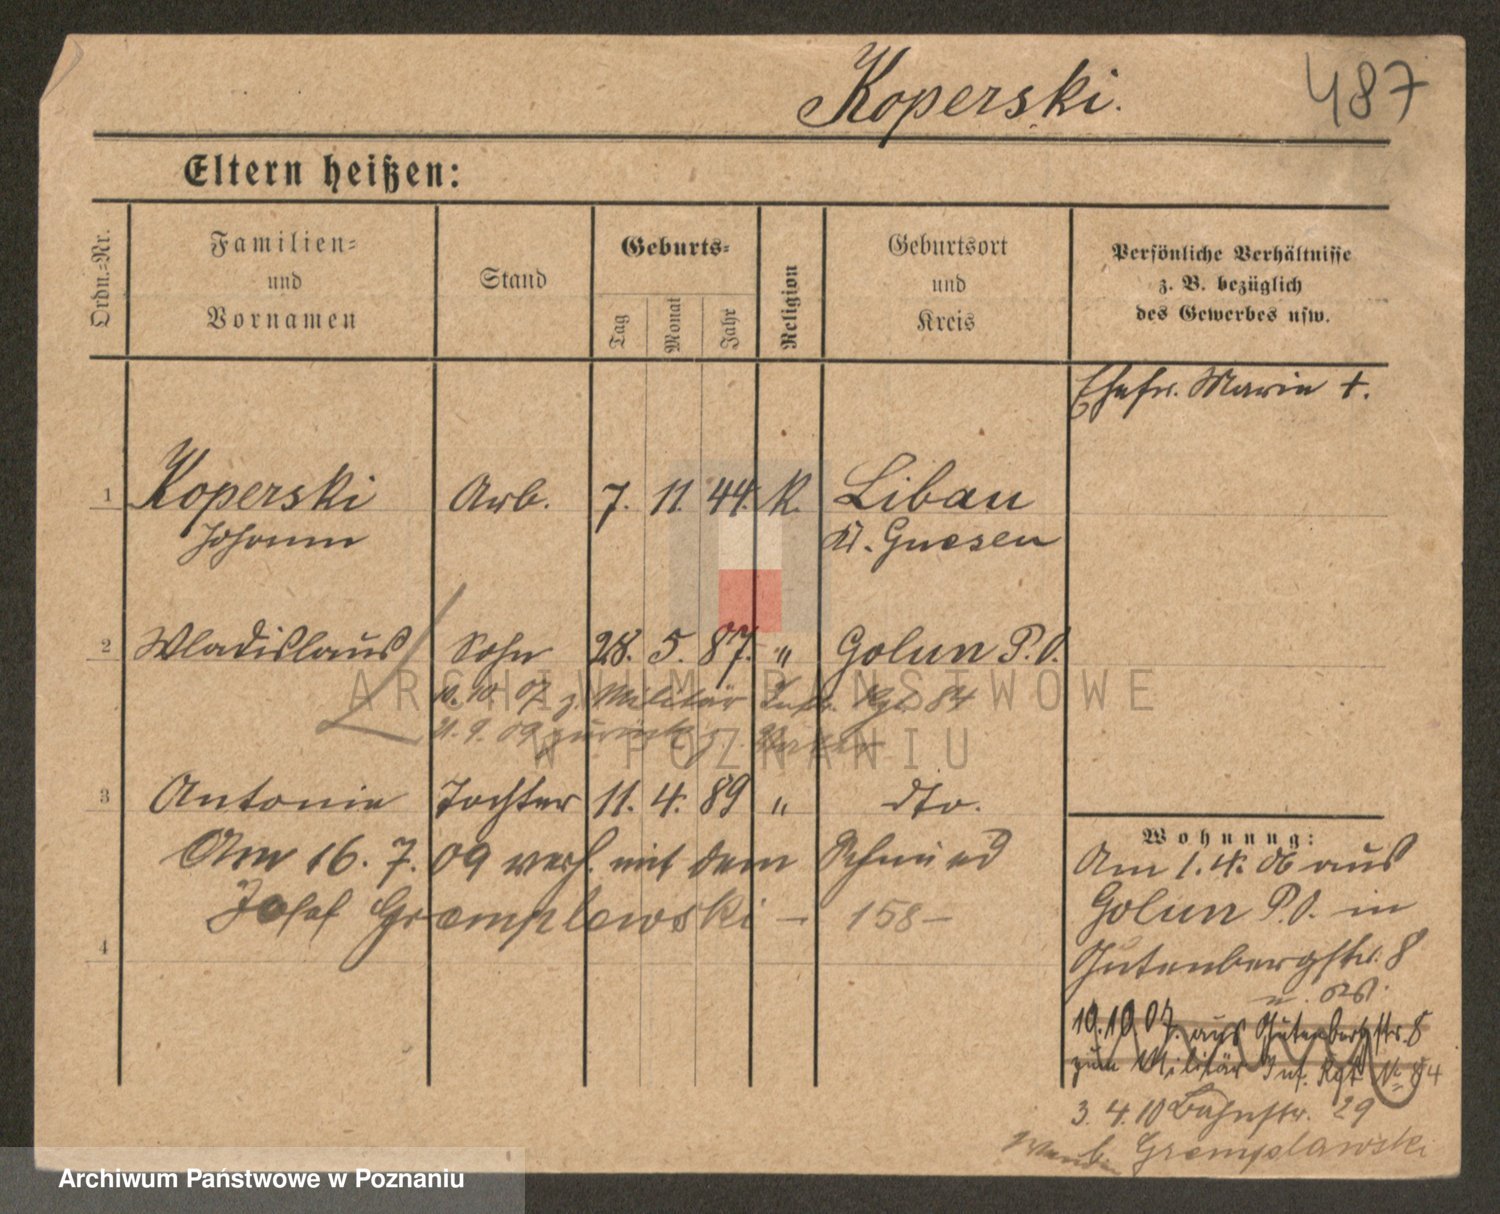 Koperski.
487
Eltern heißen:
Ordn.=Nr.
Familien=
und
Vornamen
Stand
Geburts=
Tag
Monat
Jahr
Religion
Geburtsort
und
Kreis
Persönliche Verhältnisse
z. B. bezüglich
des Gewerbes usw.
Ehefr. Marie +.
1 Koperski Arb. 7. 11. 44. K. Libau
Johann Kr. Gnesen
2 Wladislaus Sohn 28. 5. 87. " Golun P.O.
10. 10. 07 z. Militär Inf. Rgt. 84
21. 9. 09 zurück z. Vater
3 Antonie Tochter 11. 4. 89 " dto.
Am 16. 7. 09 verh. mit dem Schmied
Josef Gremplewski – 158 –
4
Wohnung:
Am 1. 4. 06 aus
Golun P.O. in
Gutenbergstr. 8
10.10.07. aus Gutenbergstr. 8
zum Militär Inf. Rgt. No 84
3. 4. 10 Bahnstr. 29
b. Gremplawski
ARCHIWUM PAŃSTWOWE
W POZNANIU
Archiwum Państwowe w Poznaniu